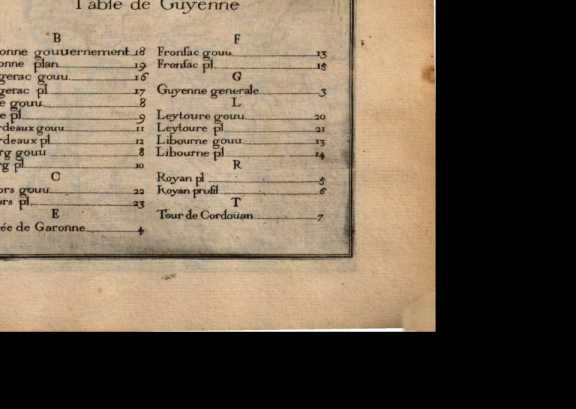 Table de Guyenne
B
onne gouuernement 18
onne plan 19
gerac gouu 16
gerac pl 17
e gouu 8
e pl 9
rdeaux gouu 11
rdeaux pl 12
rg gouu 8
rg pl 10
C
ors gouu 22
ors pl 23
E
ée de Garonne 4
F
Fronsac gouu 13
Fronsac pl 15
G
Guyenne generale 3
L
Leytoure gouu 20
Leytoure pl 21
Libourne gouu 13
Libourne pl 14
R
Royan pl 5
Royan profil 6
T
Tour de Cordoüan 7